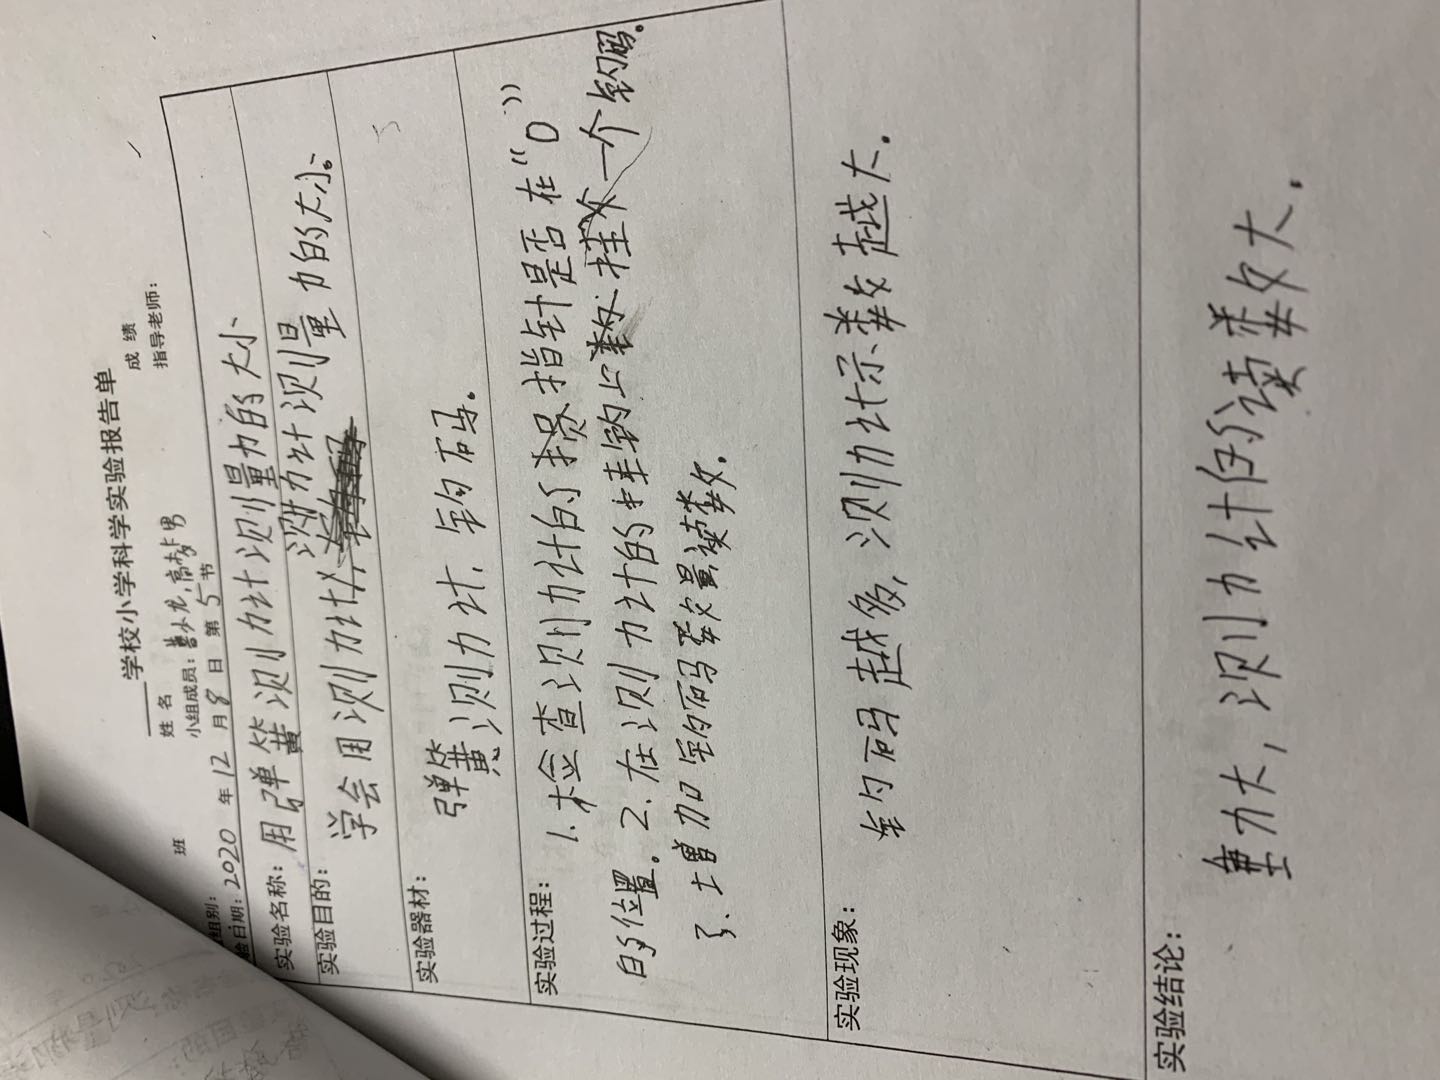 学校小学科学实验报告单
班 姓名 成绩
组别: 小组成员: 指导老师:
验日期: 2020 年 12 月 8 日 第 5 节
实验名称: 用弹簧测力计测量力的大小
实验目的:
学会用测力计测力计测量力的大小。
实验器材:
弹簧测力计、钩码。
实验过程:
1.检查测力计的指针是否在“0”
的位置。2.在测力计的挂钩上挂一个钩码。
3.增加钩码数量读数。
实验现象:
钩码越多,测力计示数越大.
实验结论:
重力大,测力计的读数大.